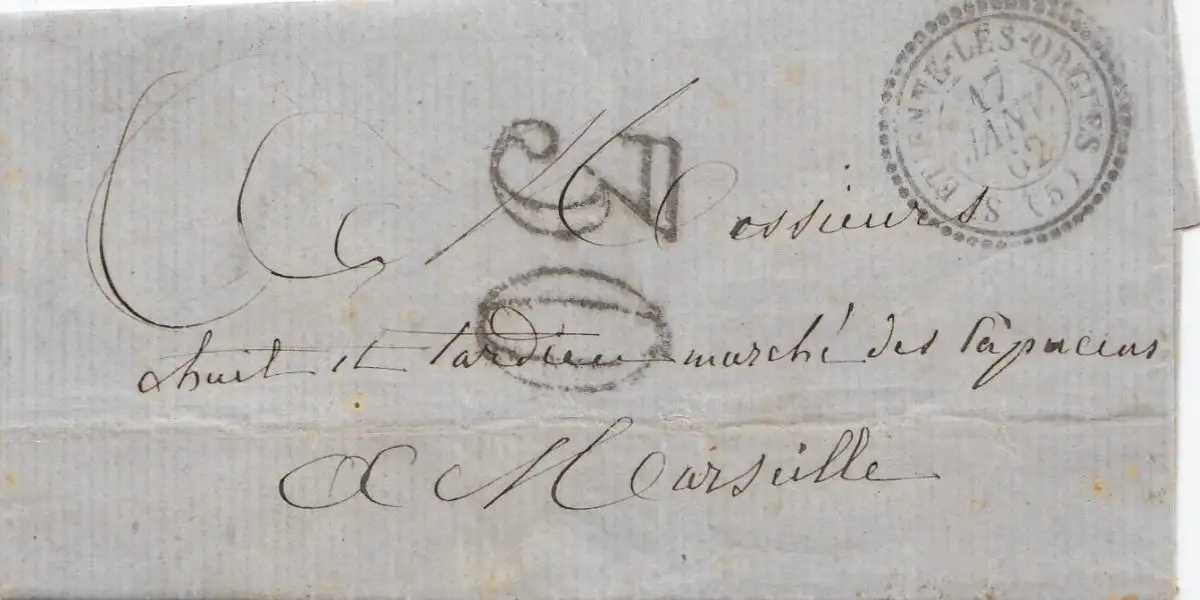 S ETIENNE-LES-ORGUES (5)
17
JANV.
62
30
Messieurs
et Tardieu marché des Capucins
a Marseille